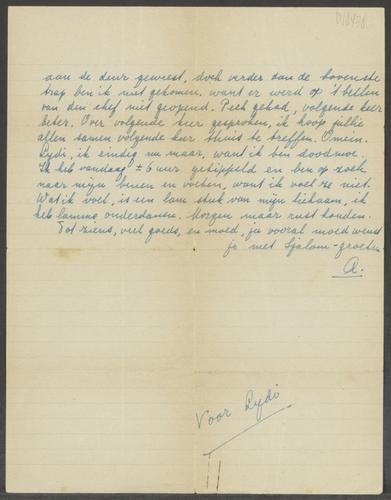 aan de deur geweest, doch verder dan de bovenste
trap ben ik niet gekomen, want er werd op 't bellen
van den chef niet geopend. Pech gehad, volgende keer
beter. Over volgende keer gesproken, ik hoop jullie
allen samen volgende keer thuis te treffen. Omein.
Lydi, ik eindig nu maar, want ik ben doodmoe.
Ik heb vandaag ± 6 uur getippeld en ben op zoek
naar mijn benen en voeten, want ik voel ze niet.
Wat ik voel, is een lam stuk van mijn lichaam, ik
heb lamme onderdanen. Morgen maar rust houden.
Tot ziens, veel goeds, en moed, ja vooral moed wenst
je met Sjalom-groeten
A.
Voor Lydi